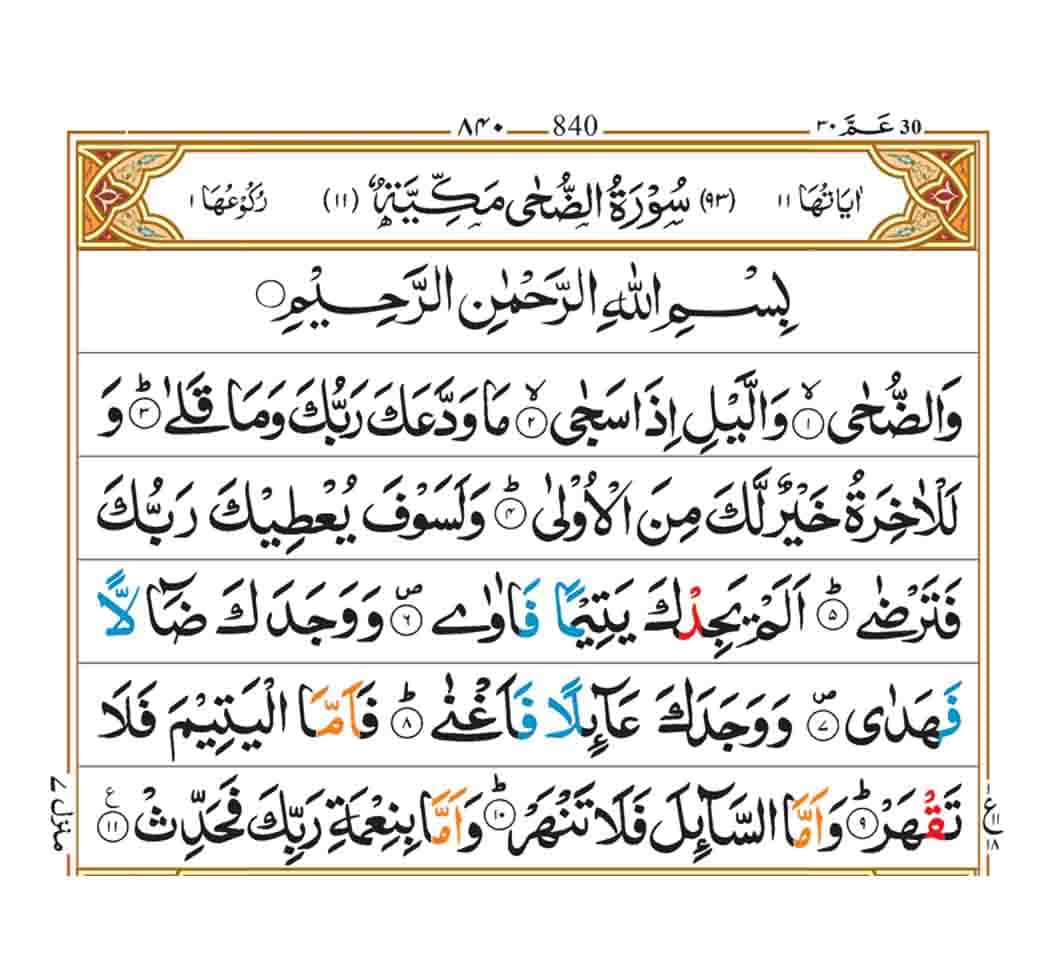 ٨٤٠ 840 عَـمَّ ٣٠ 30
اٰيَاتُهَا ١١ (٩٣) سُوْرَةُ الضُّحٰى مَكِّيَّةٌ (١١) رُكُوْعُهَا ١
بِسْمِ اللّٰهِ الرَّحْمٰنِ الرَّحِيْمِ ○
وَالضُّحٰى ۙ﴿١﴾ وَالَّيْلِ اِذَا سَجٰى ۙ﴿٢﴾ مَا وَدَّعَكَ رَبُّكَ وَمَا قَلٰى ؕ﴿٣﴾ وَ
لَلْاٰخِرَةُ خَيْرٌ لَّكَ مِنَ الْاُوْلٰى ؕ﴿٤﴾ وَلَسَوْفَ يُعْطِيْكَ رَبُّكَ
فَتَرْضٰى ؕ﴿٥﴾ اَلَمْ يَجِدْكَ يَتِيْمًا فَاٰوٰى ۪﴿٦﴾ وَوَجَدَكَ ضَآلًّا
فَهَدٰى ۪﴿٧﴾ وَوَجَدَكَ عَآئِلًا فَاَغْنٰى ؕ﴿٨﴾ فَاَمَّا الْيَتِيْمَ فَلَا
تَقْهَرْ ؕ﴿٩﴾ وَاَمَّا السَّآئِلَ فَلَا تَنْهَرْ ؕ﴿١٠﴾ وَاَمَّا بِنِعْمَةِ رَبِّكَ فَحَدِّثْ ﴿١١﴾ ع
ع ١ ١١ ١٨
منزل ٧